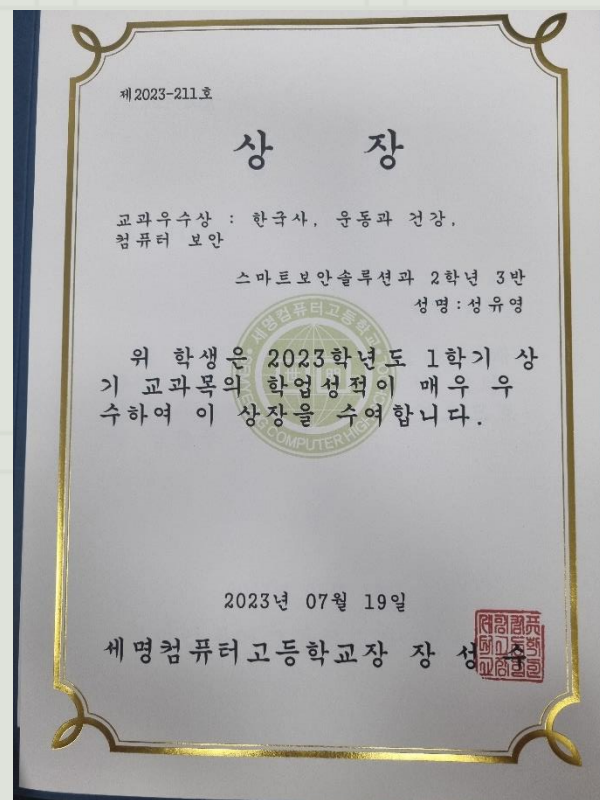 제2023-211호
상 장
교과우수상 : 한국사, 운동과 건강,
컴퓨터 보안
스마트보안솔루션과 2학년 3반
성명:성유영
위 학생은 2023학년도 1학기 상
기 교과목의 학업성적이 매우 우
수하여 이 상장을 수여합니다.
세명컴퓨터고등학교
COMPUTER HIGH
2023년 07월 19일
세명컴퓨터고등학교장 장 성 숙